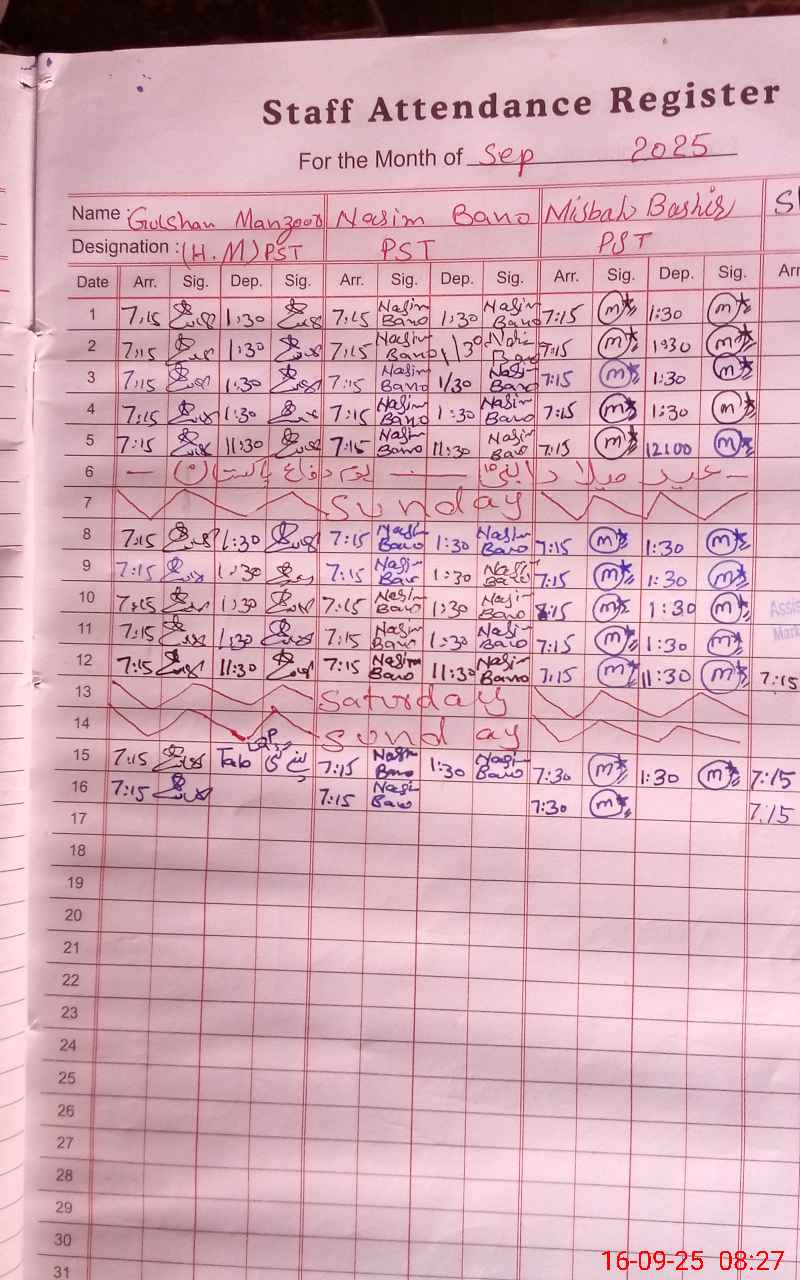 Staff Attendance Register
For the Month of Sep 2025
Name : Gulshan Manzoor Nasim Bano Misbah Bashir
Designation : (H.M) PST PST PST
Date Arr. Sig. Dep. Sig. Arr. Sig. Dep. Sig. Arr. Sig. Dep. Sig. Arr
1 7:15 1:30 7:15 Nasim Bano 1:30 Nasim Bano 7:15 m 1:30 m
2 7:15 1:30 7:15 Nasim Bano 1/30 Bano 7:15 m 1:30 m
3 7:15 1:30 7:15 Nasim Bano 1/30 Nasim Bano 7:15 m 1:30 m
4 7:15 1:30 7:15 Nasim Bano 1:30 Nasim Bano 7:15 m 1:30 m
5 7:15 11:30 7:15 Nasim Bano 11:30 Nasim Bano 7:15 m 12:00 m
6 عید میلاد النبی یوم دفاع پاکستان
7 Sunday
8 7:15 1:30 7:15 Nasim Bano 1:30 Nasim Bano 7:15 m 1:30 m
9 7:15 1:30 7:15 Nasim Bano 1:30 Nasim Bano 7:15 m 1:30 m
10 7:15 1:30 7:15 Nasim Bano 1:30 Nasim Bano 7:15 m 1:30 m
Assis
11 7:15 1:30 7:15 Nasim Bano 1:30 Nasim Bano 7:15 m 1:30 m
Mark
12 7:15 11:30 7:15 Nasim Bano 11:30 Nasim Bano 7:15 m 11:30 m 7:15
13 Saturday
14 Sunday
15 7:15 Tab 7:15 Nasim Bano 1:30 Nasim Bano 7:30 m 1:30 m 7:15
16 7:15 7:15 Nasim Bano 7:30 m 7:15
17
18
19
20
21
22
23
24
25
26
27
28
29
30
31
16-09-25 08:27